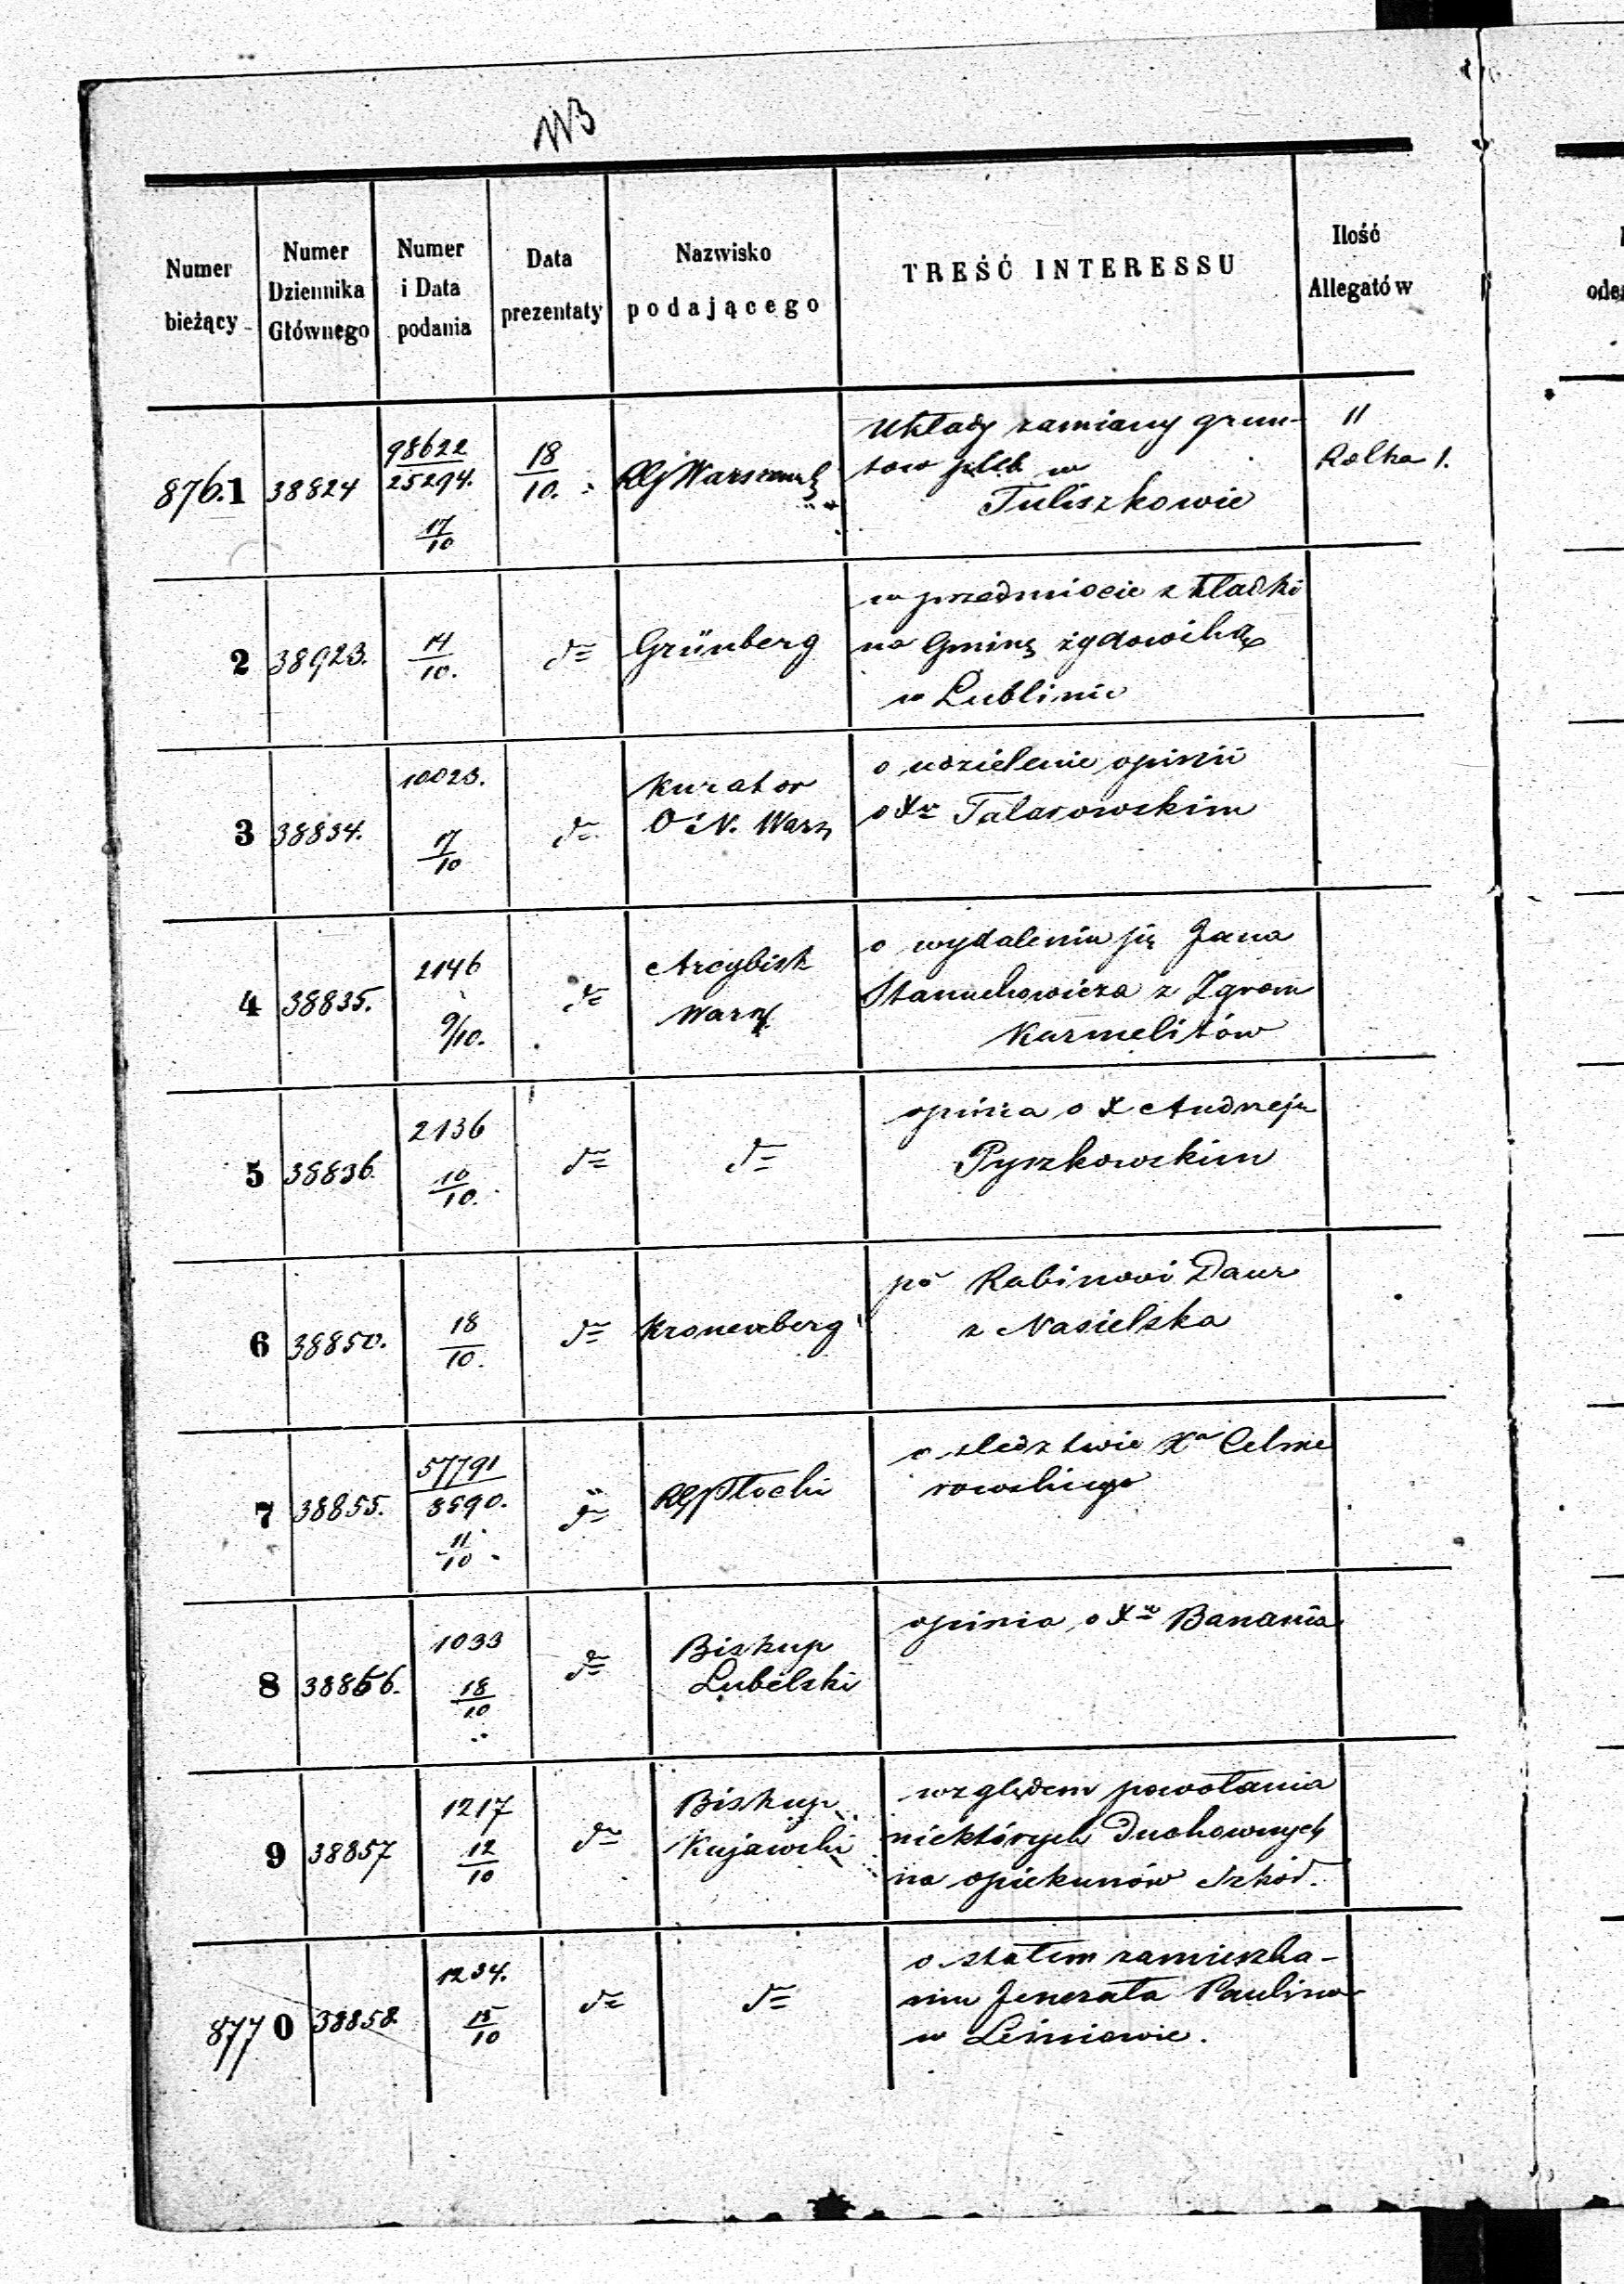 Numer bieżący
Numer Dziennika Głównego
Numer i Data podania
Data prezentaty
Nazwisko podającego
TREŚĆ INTERESSU
Ilość Allegatów
876.1 38824 98622/25294. 17/10 18/10. RG Warszawsk
Układy zamiany grun-
tow pleb w
Tuliszkowie
11
Rolka 1.
2 38923. 14/10. d= Grünberg
w przedmiocie składki
na Gminę żydowską
w Lublinie
3 38834. 10023. 17/10 d= Kurator
O N. Warsz
o udzielenie opinii
o Xu Talarowskim
4 38835. 2146 9/10. d= Arcybisk
Warsz
o wydaleniu się Jana
Stanuchowicza z Zgrom
Karmelitów
5 38836. 2136 10/10. d= d=
opinia o X Andrzeju
Pyszkowskim
6 38850. 18/10. d= Kronenberg
po Rabinowi Daur
z Nasielska
7 38855. 57791/8590. 11/10. d= RG Płocki
o sledztwie Xa Celme
rowskiego
8 38856. 1033 18/10 d= Biskup
Lubelski
opinia o Xu Banania
9 38857 1217 12/10 d= Biskup
Kujawski
względem powołania
niektórych Duchownych
na opiekunów Szkół.
8770 38858. 1234. 15/10 d= d=
o stałem zamieszka-
niu Jenerała Paulinow
w Leśniowie.